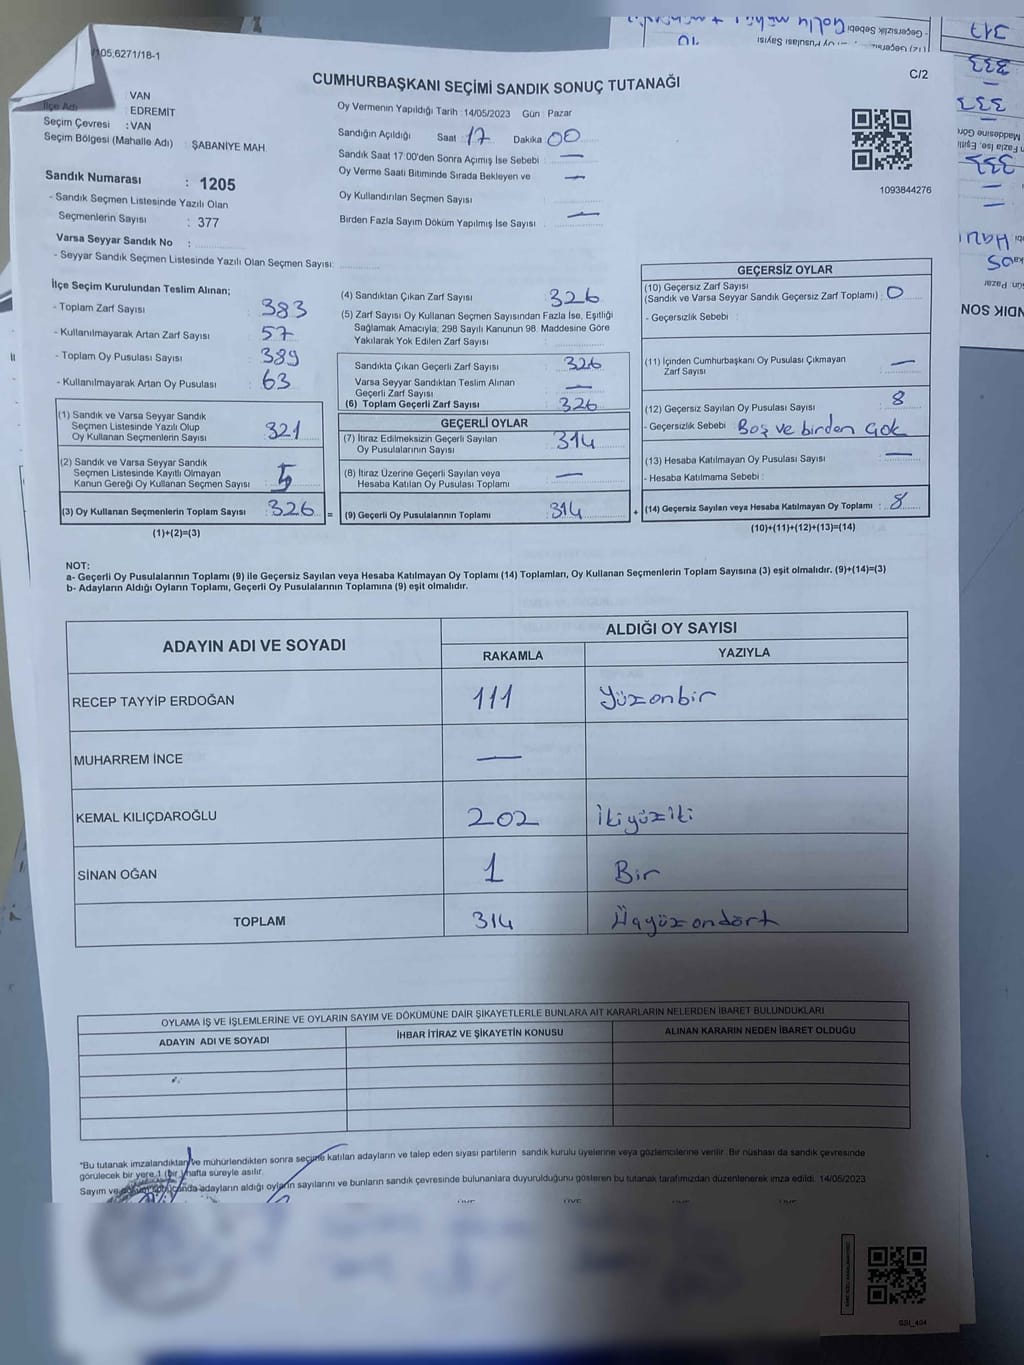 /105,6271/18-1
C/2
CUMHURBAŞKANI SEÇİMİ SANDIK SONUÇ TUTANAĞI
VAN
İlçe Adı : EDREMIT
Seçim Çevresi : VAN
Seçim Bölgesi (Mahalle Adı) : ŞABANİYE MAH.
Sandık Numarası : 1205
- Sandık Seçmen Listesinde Yazılı Olan
Seçmenlerin Sayısı : 377
Varsa Seyyar Sandık No :
- Seyyar Sandık Seçmen Listesinde Yazılı Olan Seçmen Sayısı:
Oy Vermenin Yapıldığı Tarih :14/05/2023 Gün : Pazar
Sandığın Açıldığı Saat 17 Dakika 00
Sandık Saat 17:00'den Sonra Açımış İse Sebebi : —
Oy Verme Saati Bitiminde Sırada Bekleyen ve
Oy Kullandırılan Seçmen Sayısı : —
Birden Fazla Sayım Döküm Yapılmış İse Sayısı : —
1093844276
İlçe Seçim Kurulundan Teslim Alınan;
- Toplam Zarf Sayısı : 383
- Kullanılmayarak Artan Zarf Sayısı : 57
- Toplam Oy Pusulası Sayısı : 389
- Kullanılmayarak Artan Oy Pusulası : 63
(1) Sandık ve Varsa Seyyar Sandık
Seçmen Listesinde Yazılı Olup
Oy Kullanan Seçmenlerin Sayısı : 321
(2) Sandık ve Varsa Seyyar Sandık
Seçmen Listesinde Kayıtlı Olmayan
Kanun Gereği Oy Kullanan Seçmen Sayısı : 5
(3) Oy Kullanan Seçmenlerin Toplam Sayısı : 326
(1)+(2)=(3)
(4) Sandıktan Çıkan Zarf Sayısı : 326
(5) Zarf Sayısı Oy Kullanan Seçmen Sayısından Fazla İse, Eşitliği
Sağlamak Amacıyla, 298 Sayılı Kanunun 98. Maddesine Göre
Yakılarak Yok Edilen Zarf Sayısı :
Sandıkta Çıkan Geçerli Zarf Sayısı : 326
Varsa Seyyar Sandıktan Teslim Alınan
Geçerli Zarf Sayısı : —
(6) Toplam Geçerli Zarf Sayısı : 326
GEÇERLİ OYLAR
(7) İtiraz Edilmeksizin Geçerli Sayılan
Oy Pusulalarının Sayısı : 314
(8) İtiraz Üzerine Geçerli Sayılan veya
Hesaba Katılan Oy Pusulası Toplamı : —
= (9) Geçerli Oy Pusulalarının Toplamı : 314
GEÇERSİZ OYLAR
(10) Geçersiz Zarf Sayısı
(Sandık ve Varsa Seyyar Sandık Geçersiz Zarf Toplamı) : 0
- Geçersizlik Sebebi :
(11) İçinden Cumhurbaşkanı Oy Pusulası Çıkmayan
Zarf Sayısı : —
(12) Geçersiz Sayılan Oy Pusulası Sayısı : 8
- Geçersizlik Sebebi : Boş ve birden çok
(13) Hesaba Katılmayan Oy Pusulası Sayısı : —
- Hesaba Katılmama Sebebi :
+ (14) Geçersiz Sayılan veya Hesaba Katılmayan Oy Toplamı : 8
(10)+(11)+(12)+(13)=(14)
NOT:
a- Geçerli Oy Pusulalarının Toplamı (9) ile Geçersiz Sayılan veya Hesaba Katılmayan Oy Toplamı (14) Toplamları, Oy Kullanan Seçmenlerin Toplam Sayısına (3) eşit olmalıdır. (9)+(14)=(3)
b- Adayların Aldığı Oyların Toplamı, Geçerli Oy Pusulalarının Toplamına (9) eşit olmalıdır.
ADAYIN ADI VE SOYADI
ALDIĞI OY SAYISI
RAKAMLA YAZIYLA
RECEP TAYYİP ERDOĞAN 111 Yüzonbir
MUHARREM İNCE —
KEMAL KILIÇDAROĞLU 202 İkiyüziki
SİNAN OĞAN 1 Bir
TOPLAM 314 Üçyüzondört
OYLAMA İŞ VE İŞLEMLERİNE VE OYLARIN SAYIM VE DÖKÜMÜNE DAİR ŞİKAYETLERLE BUNLARA AİT KARARLARIN NELERDEN İBARET BULUNDUKLARI
ADAYIN ADI VE SOYADI İHBAR İTİRAZ VE ŞİKAYETİN KONUSU ALINAN KARARIN NEDEN İBARET OLDUĞU
*Bu tutanak imzalandıktan ve mühürlendikten sonra seçime katılan adayların ve talep eden siyasi partilerin sandık kurulu üyelerine veya gözlemcilerine verilir. Bir nüshası da sandık çevresinde
görülecek bir yere 1 (bir) hafta süreyle asılır.
Sayım ve sonucunda adayların aldığı oyların sayılarını ve bunların sandık çevresinde bulunanlara duyurulduğunu gösteren bu tutanak tarafımızdan düzenlenerek imza edildi. 14/05/2023